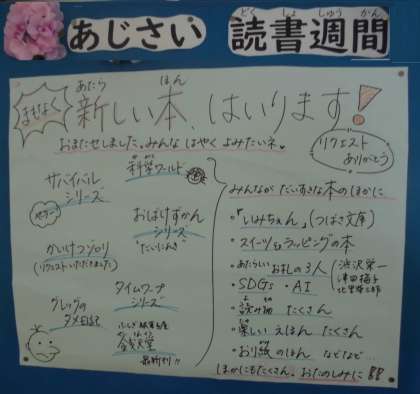 あじさい 読書週間
どく しょ しゅう かん
まもなく
新しい本、はいります!
あたら ほん
おまたせしました。みんな はやく よみたいネ。
リクエスト
ありがとう
サバイバル
シリーズ
科学ワールド
おばけずかん
シリーズ
"だいにんき"
かいけつゾロリ
(リクエストいただきました)
タイムワープ
シリーズ
グレッグの
ダメ日記
ふしぎ駄菓子屋
銭天堂
最新刊!!
みんなが だいすきな本のほかに
・「いみちぇん」(つばさ文庫)
・スイーツ&ラッピングの本
・あたらしい お札の3人
渋沢栄一
津田梅子
北里柴三郎
・SDGs ・AI
・読み物 たくさん
・楽しい えほん たくさん
・おり紙のほん などなど…
ほかにもたくさん。おたのしみに